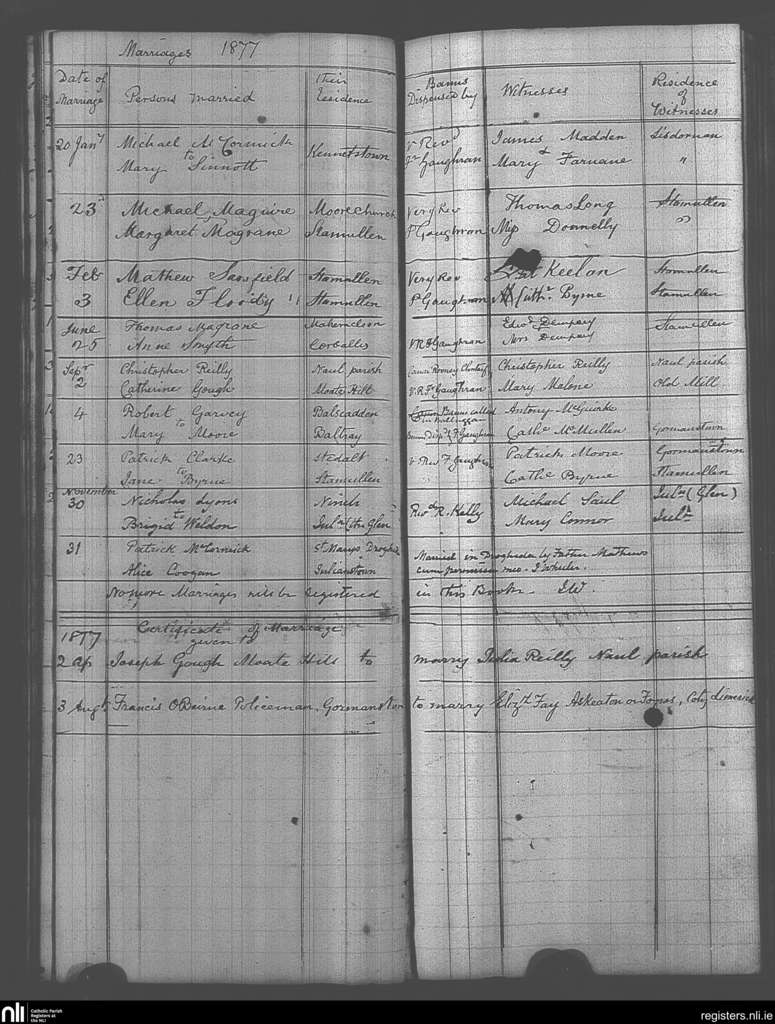 Marriages 1877
Date of Marriage Persons married their residence Banns Dispensed by Witnesses Residence of Witnesses
20 Jany Michael McCormick Kennetstown V Revd James Madden Lisdornan
to
Mary Sinnott Fr Gaughran Mary Farnane "
23 Michael Maguire Moorechurch Very Rev Thomas Long Stamullen
Margaret Magrane Stamullen F Gaughran Miss Donnelly "
Feb Mathew Sarsfield Stamullen Very Rev Keelan Stamullen
3 Ellen Flordy Stamullen P Gaughran Byrne Stamullen
June Thomas Magrane Edwd Dempsey Stamullen
25 Anne Smyth Corballis VRF Gaughran Mrs Dempsey
Sepr Christopher Reilly Naul parish Christopher Reilly Naul parish
2 Catherine Gough Moate Hill V.R.F Gaughran Mary Malone Old Mill
4 Robert Garvey Balscadden Banns called Antony McGuirke
to
Mary Moore Baltray F Gaughran Cathe McMullen Gormanstown
23 Patrick Clarke Stedalt V Rev F Gaughran Patrick Moore Gormanstown
to
Jane Byrne Stamullen Cathe Byrne Stamullen
November
30 Nicholas Lyons Ninch Revd R. Kelly Michael Saul Juls (Glen)
to
Brigid Weldon Juls (the Glen) Mary Connor Juls
31 Patrick McCormick St Marys Drogheda Married in Drogheda by Father Mathews
Alice Coogan Julianstown cum permissu meo. J Wheeler.
No more Marriages will be registered in this Book. J.W.
1877 Certificate of Marriage
given to
2 Ap Joseph Gough Moate Hill to marry Julia Reilly Naul parish
3 Augt Francis O'Beirne Policeman, Gormanston to marry Elizth Fay Askeaton or Foynes, Coty Limerick
nli Catholic Parish Registers at the NLI
registers.nli.ie